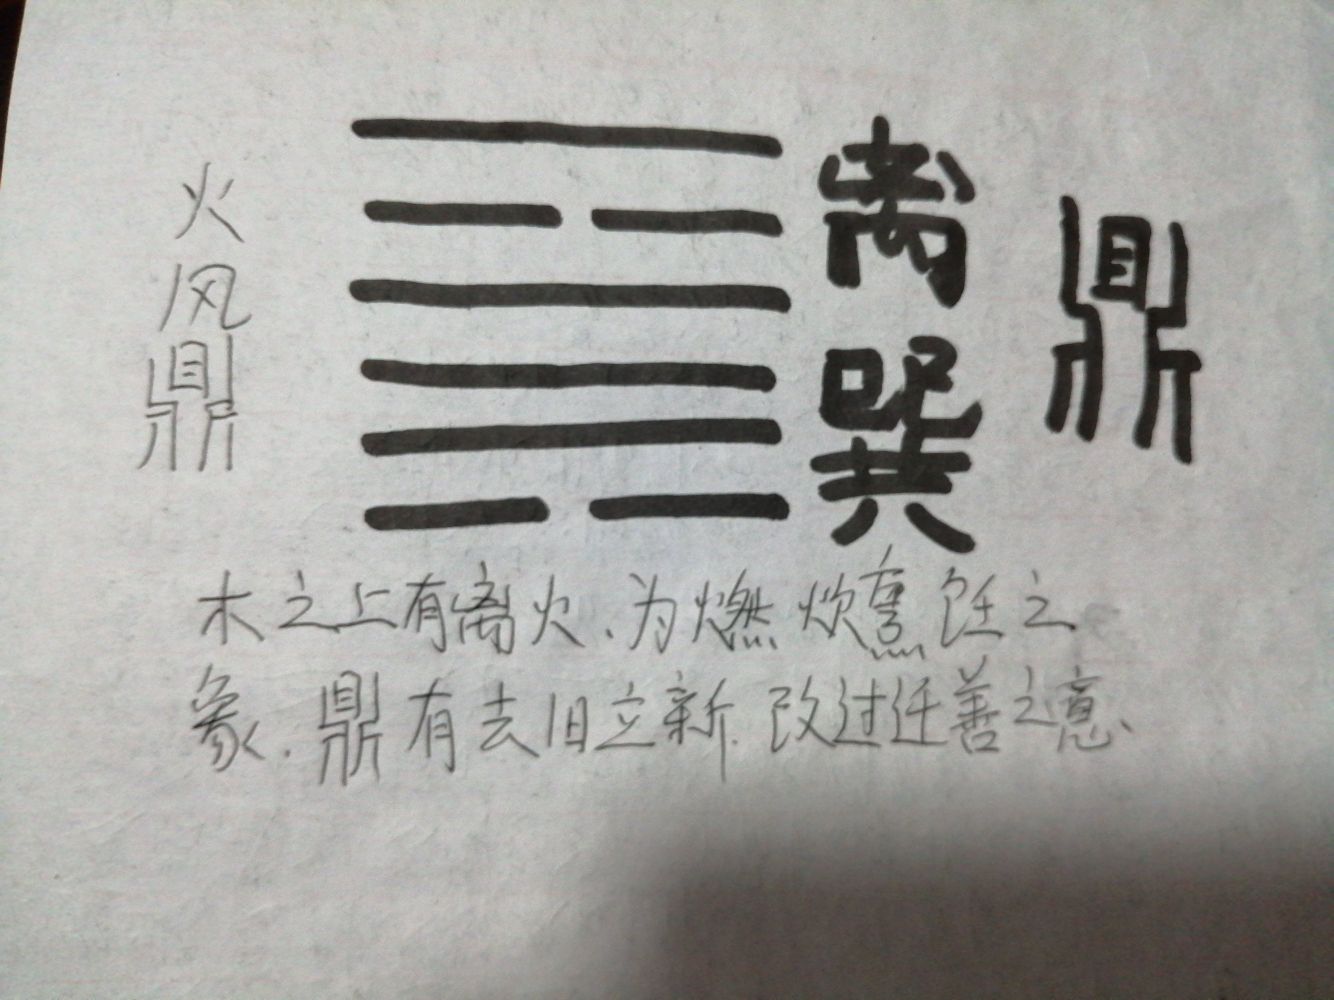 火风鼎
离
巽
鼎
木之上有离火、为燃炊烹饪之
象.鼎有去旧立新.改过迁善之意、